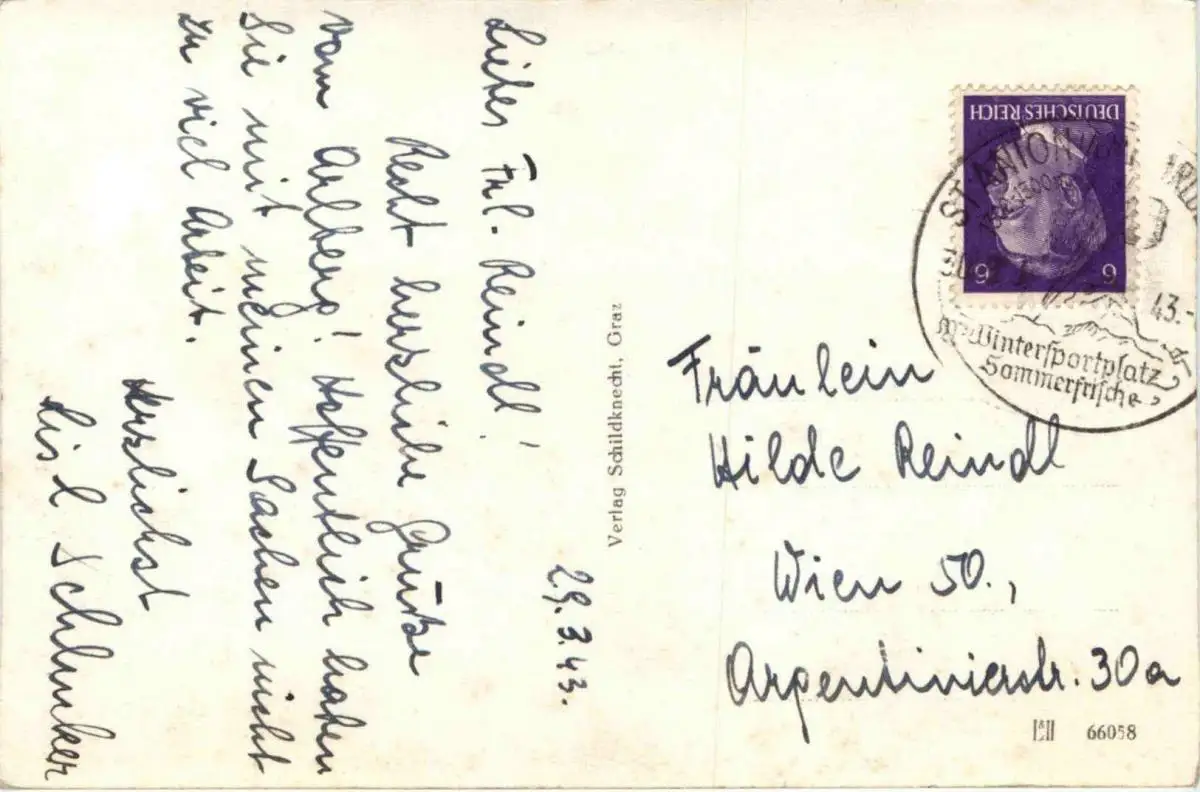 29.3.43.
Liebes Frl. Reindl!
Recht herzliche Grüße
vom Arlberg! Hoffentlich haben
Sie mit meinen Sachen nicht
zu viel Arbeit.
Herzlichst
Lisl
Verlag Schildknecht, Graz
DEUTSCHES REICH
6 6
ST. ANTON
43.-
Wintersportplatz
Sommerfrische
Fräulein
Hilde Reindl
Wien 50.,
Argentinierstr. 30a
66058